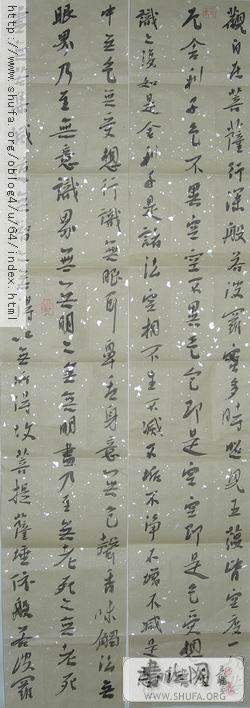 觀自在菩薩行深般若波羅蜜多時照見五蘊皆空度一
厄舍利子色不異空空不異色色即是空空即是色受想
識亦復如是舍利子是諸法空相不生不滅不垢不淨不增不減是
中无色无受想行識無眼耳鼻舌身意无色聲香味觸法无
眼界乃至無意識界無无明亦无無明盡乃至無老死亦無老死
滅
得以無所得故菩提薩埵依般若波羅
http://www.shufa.org/oblog4/u/64/index.html
書法网
WWW.SHUFA.ORG